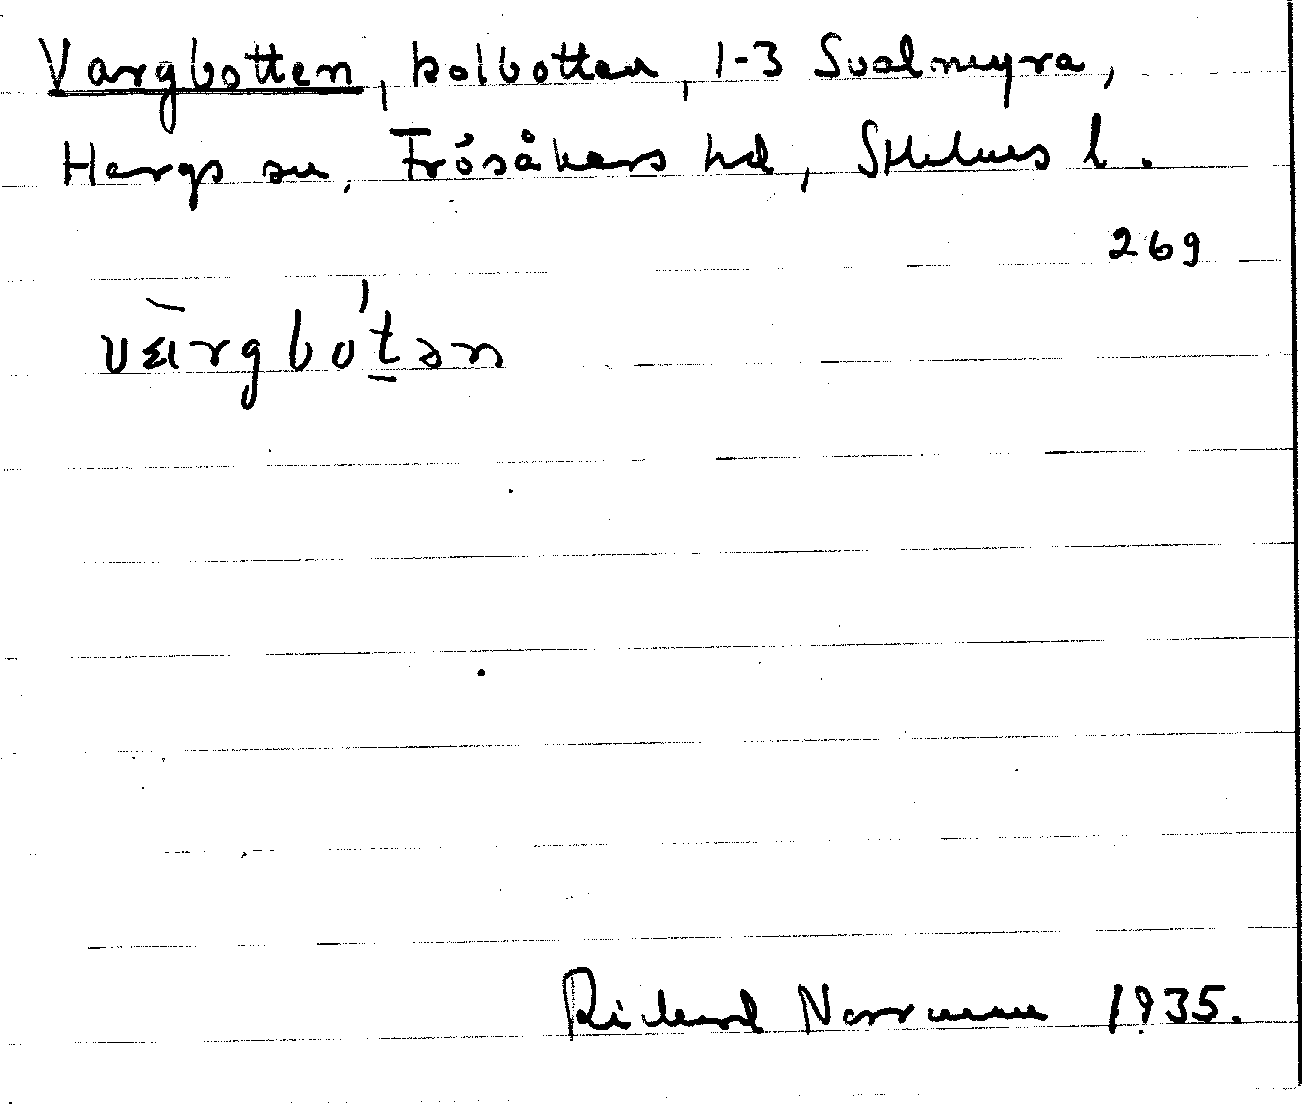 Vargbotten, kolbotten, 1-3 Svalmyra,
Hargs sn, Frösåkers hd, Sthlms l.
269
värgbo'tən
Richard Norrman 1935.